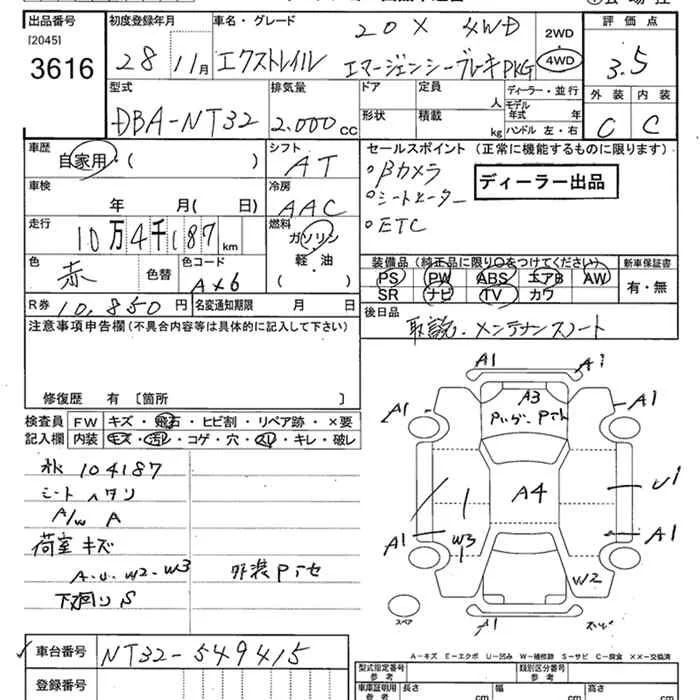 出品番号 初度登録年月 車名・グレード 20X 4WD 2WD 評価点
[2045] 3616 28 11月 エクストレイル エマージェンシーブレーキPKG 4WD 3.5
型式 排気量 ドア 定員 人 ディーラー・並行 外装 内装
DBA-NT32 2.000 cc 形状 積載 kg モデル年式 年 ハンドル 左・右 C C
車歴 自家用・( ) シフト AT セールスポイント(正常に機能するものに限ります)
車検 年 月( 日) 冷房 AAC °Bカメラ ディーラー出品
°シートヒーター
°ETC
走行 10万4千187km 燃料 ガソリン 軽・油 ( )
色 赤 色替 色コード AX6 装備品(純正品に限り○をつけてください) 新車保証書
PS PW ABS エアB AW 有・無
SR ナビ TV カワ
R券 10,850円 名変通知期限 月 日 後日品
取説・メンテナンスノート
注意事項申告欄(不具合内容等は具体的に記入して下さい)
修復歴 有 〔箇所 〕
検査員記入欄 FW キズ・飛石・ヒビ割・リペア跡・×要
内装 キズ・汚レ・コゲ・穴・スレ・キレ・破レ
104187
シートヘタリ
A/W A
荷室キズ
A.U.W2.W3
下廻りS
A1 A1
A3
A1 A1
A4 U1
A1 W3 A1
W2
A1
スペア
A-キズ E-エクボ U-凹み W-補修跡 S-サビ C-腐食 XX-交換済
車台番号 NT32-549415
登録番号
型式指定番号 参考 類別区分番号 参考
車庫証明用 参考 長さ cm 幅 cm 高さ cm